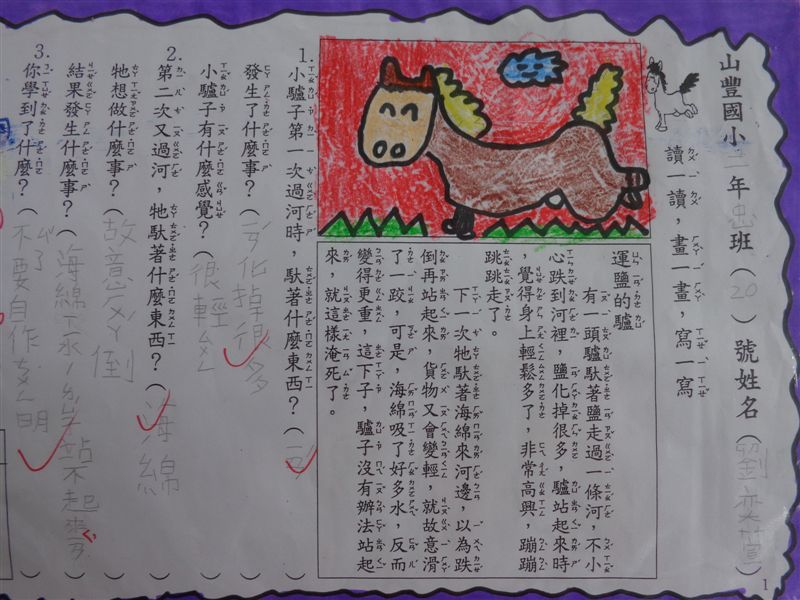 山豐國小二年忠班（20）號姓名（劉）
讀一讀，畫一畫，寫一寫
運鹽的驢
有一頭驢馱著鹽走過一條河，不小
心跌到河裡，鹽化掉很多，驢站起來時
，覺得身上輕鬆多了，非常高興，蹦蹦
跳跳走了。
下一次牠馱著海綿來河邊，以為跌
倒再站起來，貨物又會變輕，就故意滑
了一跤，可是，海綿吸了好多水，反而
變得更重，這下子，驢子沒有辦法站起
來，就這樣淹死了。
1.小驢子第一次過河時，馱著什麼東西？（ㄧㄢˊ）
發生了什麼事？（ㄧㄢˊ化掉很多）
小驢子有什麼感覺？（很輕ㄙㄨㄥ）
2.第二次又過河，牠馱著什麼東西？（海綿）
牠想做什麼事？（故意ㄏㄨㄚˊ倒）
結果發生什麼事？（海綿 站不起來）
3.你學到了什麼？（不要自作ㄘㄨㄥ明）
1